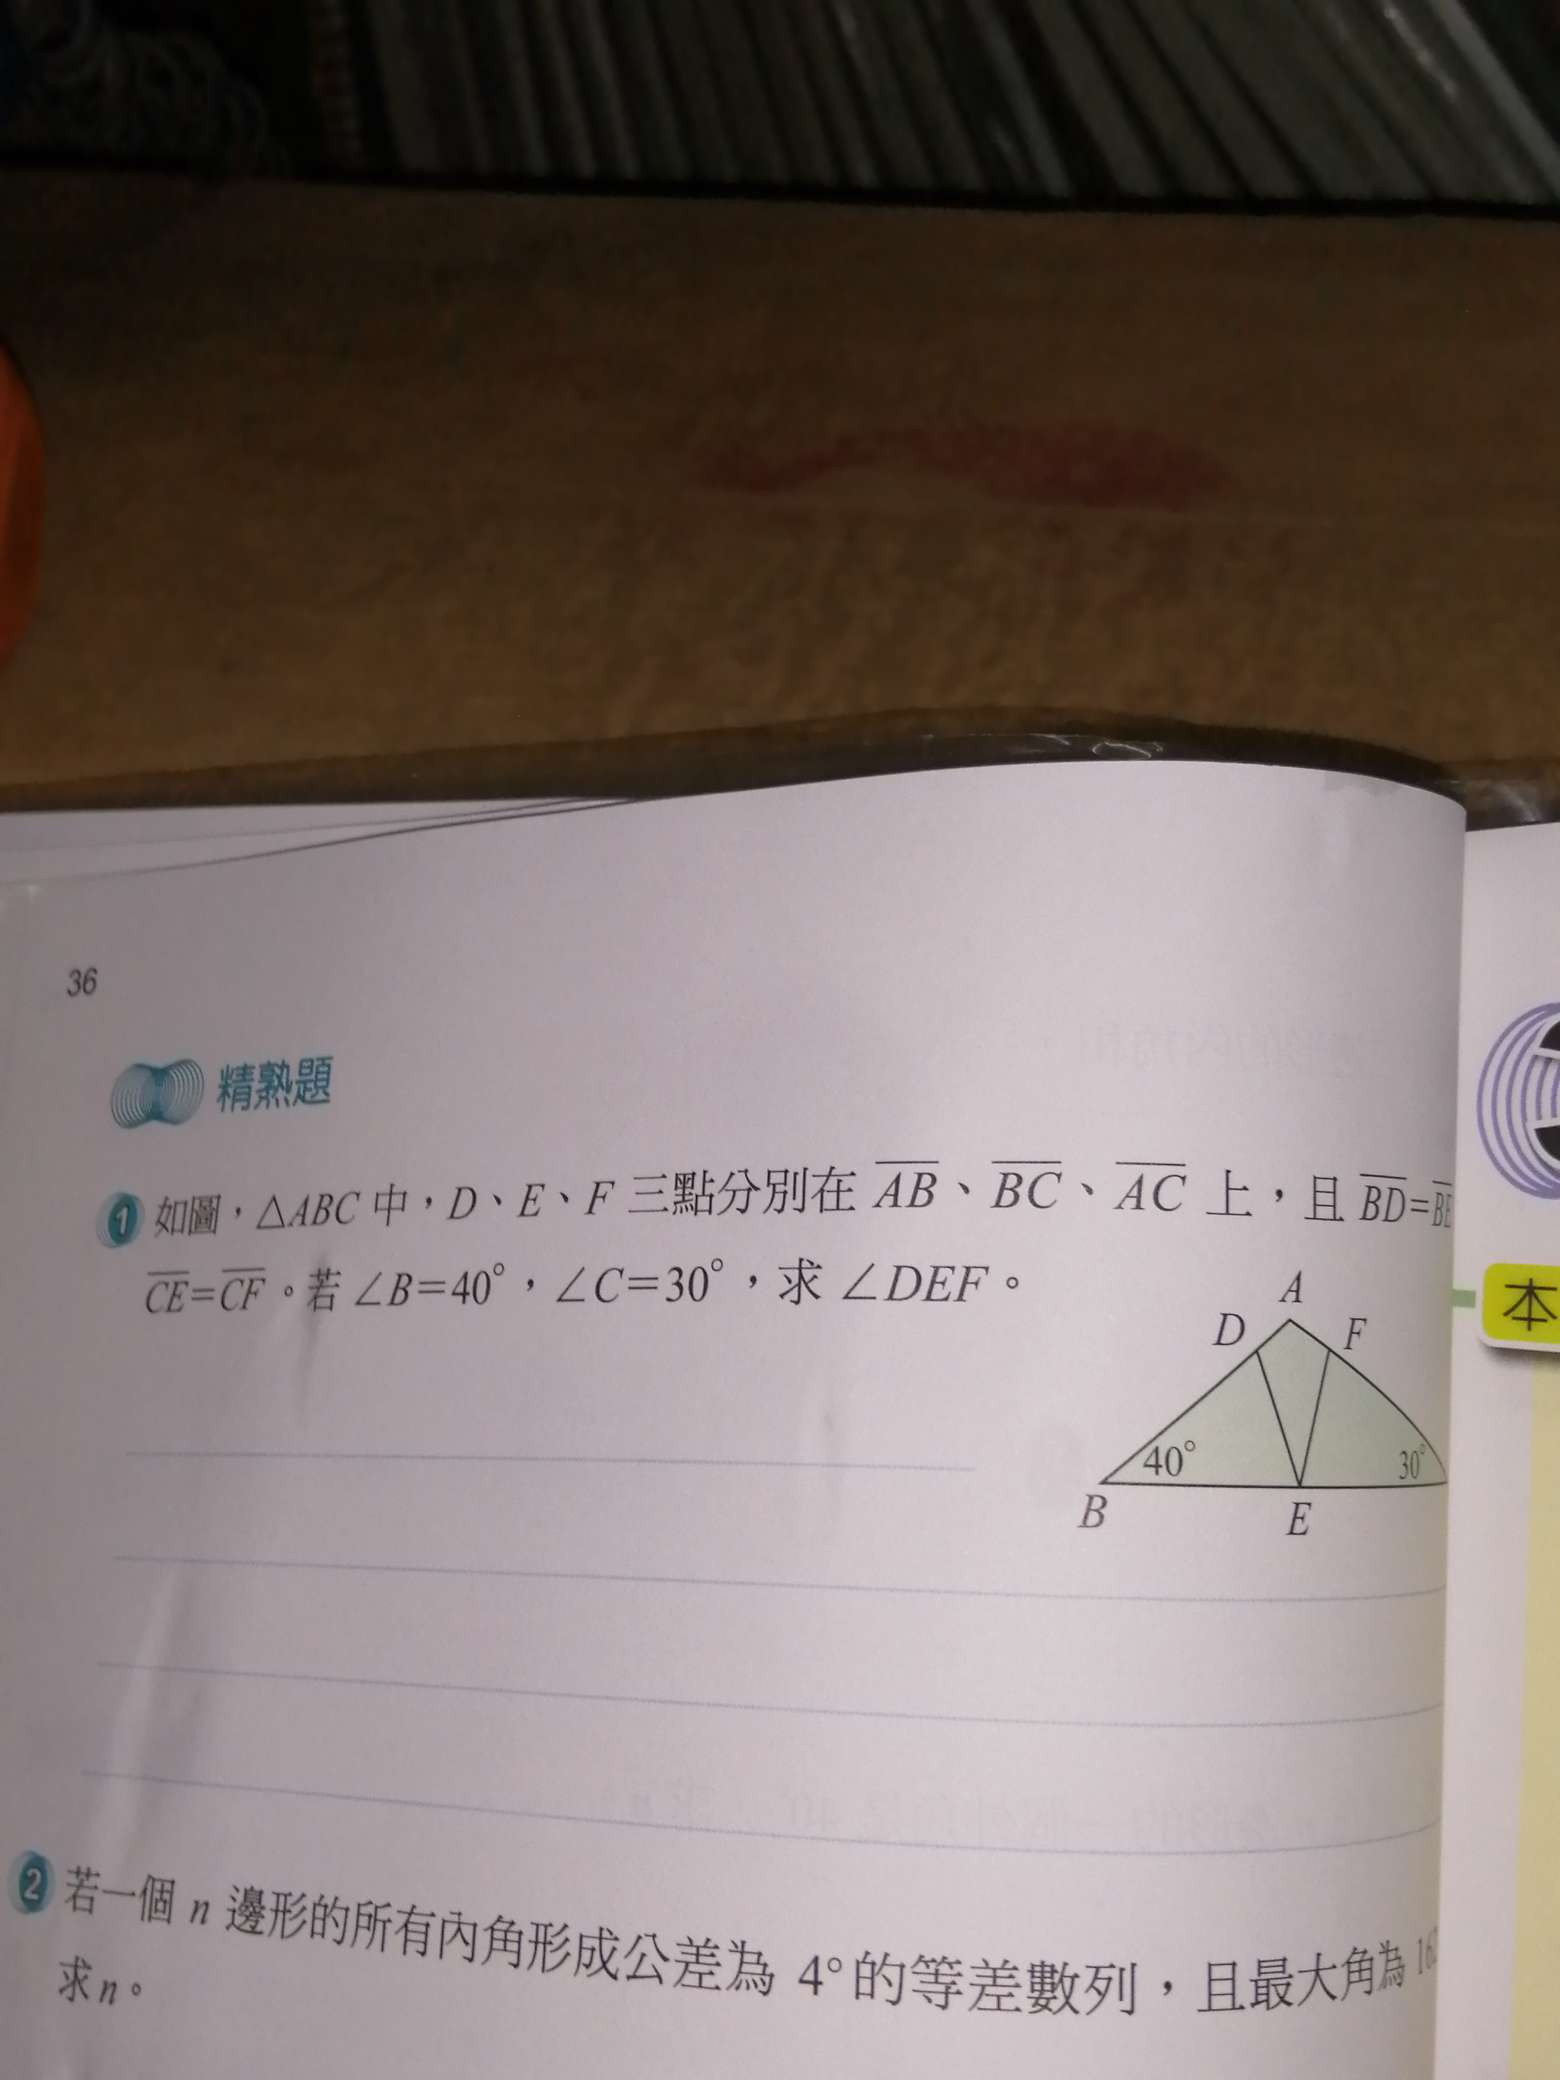 36
精熟題
1 如圖，△ABC 中，D、E、F 三點分別在 AB、BC、AC 上，且 BD=BE
CE=CF。若 ∠B=40°，∠C=30°，求 ∠DEF。
A
D
F
本
40°
30°
B
E
2 若一個 n 邊形的所有內角形成公差為 4°的等差數列，且最大角為
求n。